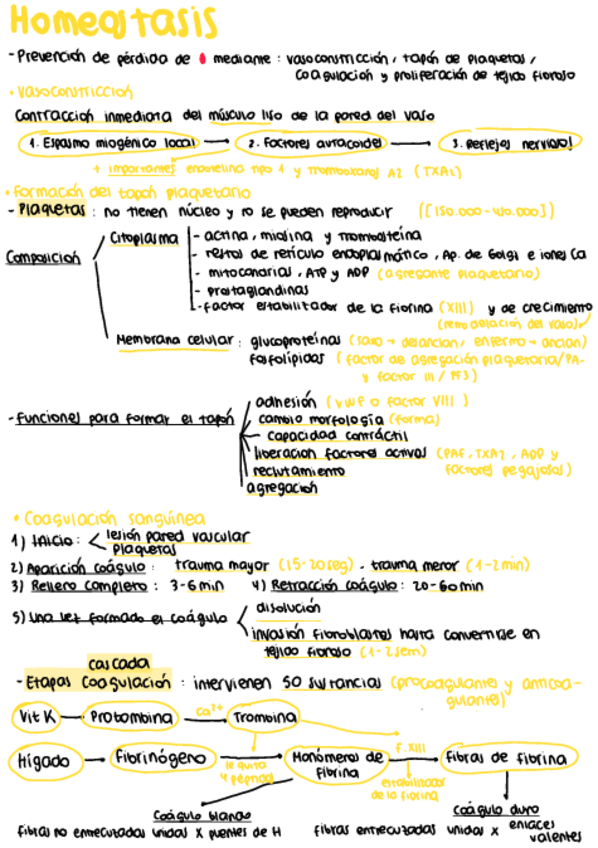 Homeostasis
- Prevención de pérdida de mediante : vasoconstricción, tapón de plaquetas,
coagulación y proliferación de tejido fibroso
• Vasoconstricción
Contracción inmediata del músculo liso de la pared del vaso
1. Espasmo miogénico local → 2. Factores autacoides → 3. Reflejos nerviosos
+ importantes endotelina tipo 1 y tromboxanos A2 (TXA2)
• Formación del tapón plaquetario
- Plaquetas : no tienen núcleo y no se pueden reproducir ([150.000 - 450.000])
Composición
Citoplasma
- actina, miosina y trombosteína
- restos de retículo endoplasmático, Ap. de Golgi e iones Ca
- mitocondrias, ATP y ADP (agregante plaquetario)
- prostaglandinas
- factor estabilizador de la fibrina (XIII) y de crecimiento
(remodelación del vaso)
Membrana celular : glucoproteínas (sano → desancian, enfermo → ancian)
fosfolípidos (factor de agregación plaquetaria/PA-
y factor III / PF3)
- Funciones para formar el tapón
adhesión (vWF o factor VIII)
cambio morfología (forma)
capacidad contráctil
liberación factores activos (PAF, TXA2, ADP y
factores pegajosos)
reclutamiento
agregación
• Coagulación sanguínea
1) Inicio :
lesión pared vascular
plaquetas
2) Aparición coágulo : trauma mayor (15-20 seg) . trauma menor (1-2 min)
3) Relleno completo : 3-6 min 4) Retracción coágulo : 20-60 min
5) Una vez formado el coágulo
disolución
invasión fibroblastos hasta convertirse en
tejido fibroso (1-2 sem)
cascada
- Etapas Coagulación : intervienen 50 sustancias (procoagulantes y anticoa-
gulantes)
Vit K Protombina Ca2+ Trombina
Hígado → Fibrinógeno → Monómeros de fibrina → F. XIII Fibras de fibrina
le quita 4 péptidos
estabilizador
de la fibrina
Coágulo blando
fibras no entrecuzadas unidas x puentes de H
Coágulo duro
fibras entrecuzadas unidas x enlaces
valentes